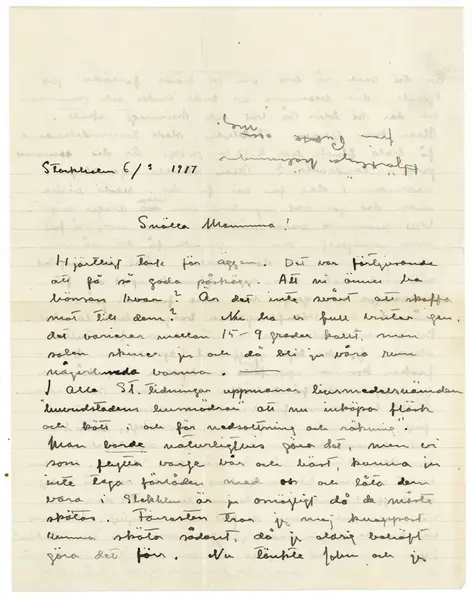 Hjärtliga hälsningar
från Gösta och
Mig.
Stockholm 6/3 1917
Snälla Mamma!
Hjärtligt tack för äggen. Det var förtjusande
att få så goda påskägg. Att ni ännu ha
hönsen kvar? Är det inte svårt att skaffa
mat till dem? Nu ha vi full vinter igen.
det varierar mellan 15-9 grader kallt, men
solen skiner ju och då bli ju våra rum
någorlunda varma.
I alla St. tidningar uppmanar livsmedelsnämnden
"huvudstadens husmödrar" att nu inköpa fläsk
och kött i och för nedsaltning och rökning".
Man borde naturligtvis göra det, men vi
som flytta varje vår och höst, kunna ju
inte lega förråden med oss och låta dem
vara i Stokhlm är ju omöjligt då de måste
skötas. Förresten tror jag mej knappast
kunna sköta sådant, då jag aldrig behövt
göra det förr. Nu tänkte John och jag